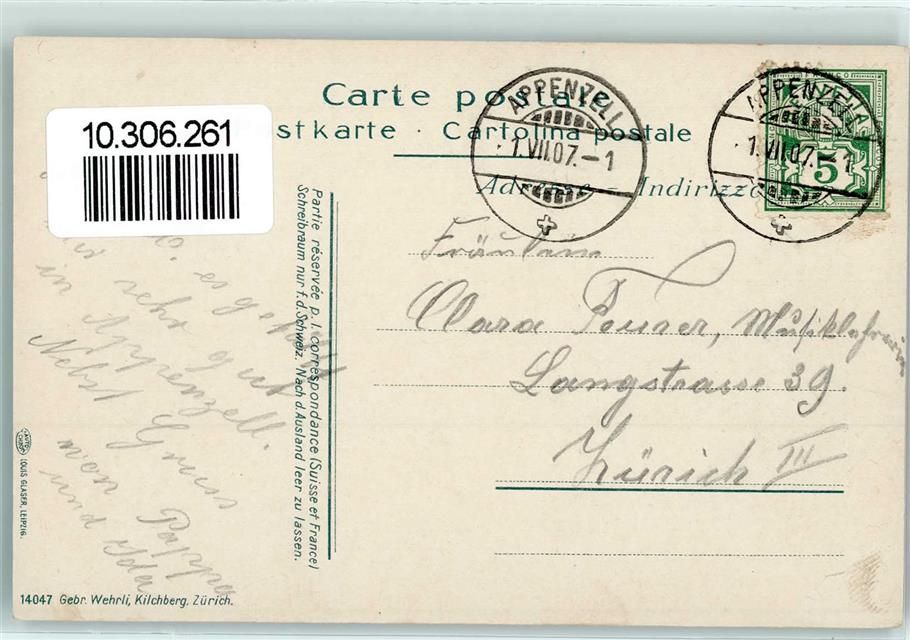 Carte postale
stkarte · Cartolina postale
Adresse - Indirizzo
10.306.261
APPENZELL
1.VII.07.-1
APPENZELL
1.VII.07.-1
HELVETIA
5
Fräulein
Clara Peurer, Musiklehrerin
Langstrasse 39.
Zürich III
es gefällt
sehr gut
in Appenzell.
Nebst Gruss
von Pappa
und Ida
Partie réservée p. l. correspondance (Suisse et France)
Schreibraum nur f. d. Schweiz. Nach d. Ausland leer zu lassen.
LOUIS GLASER, LEIPZIG.
14047 Gebr. Wehrli, Kilchberg, Zürich.